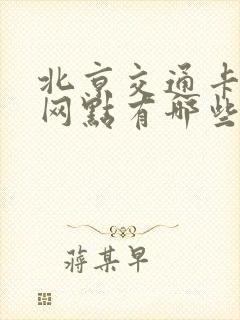 北京交通卡
网點有哪些
蔣某早